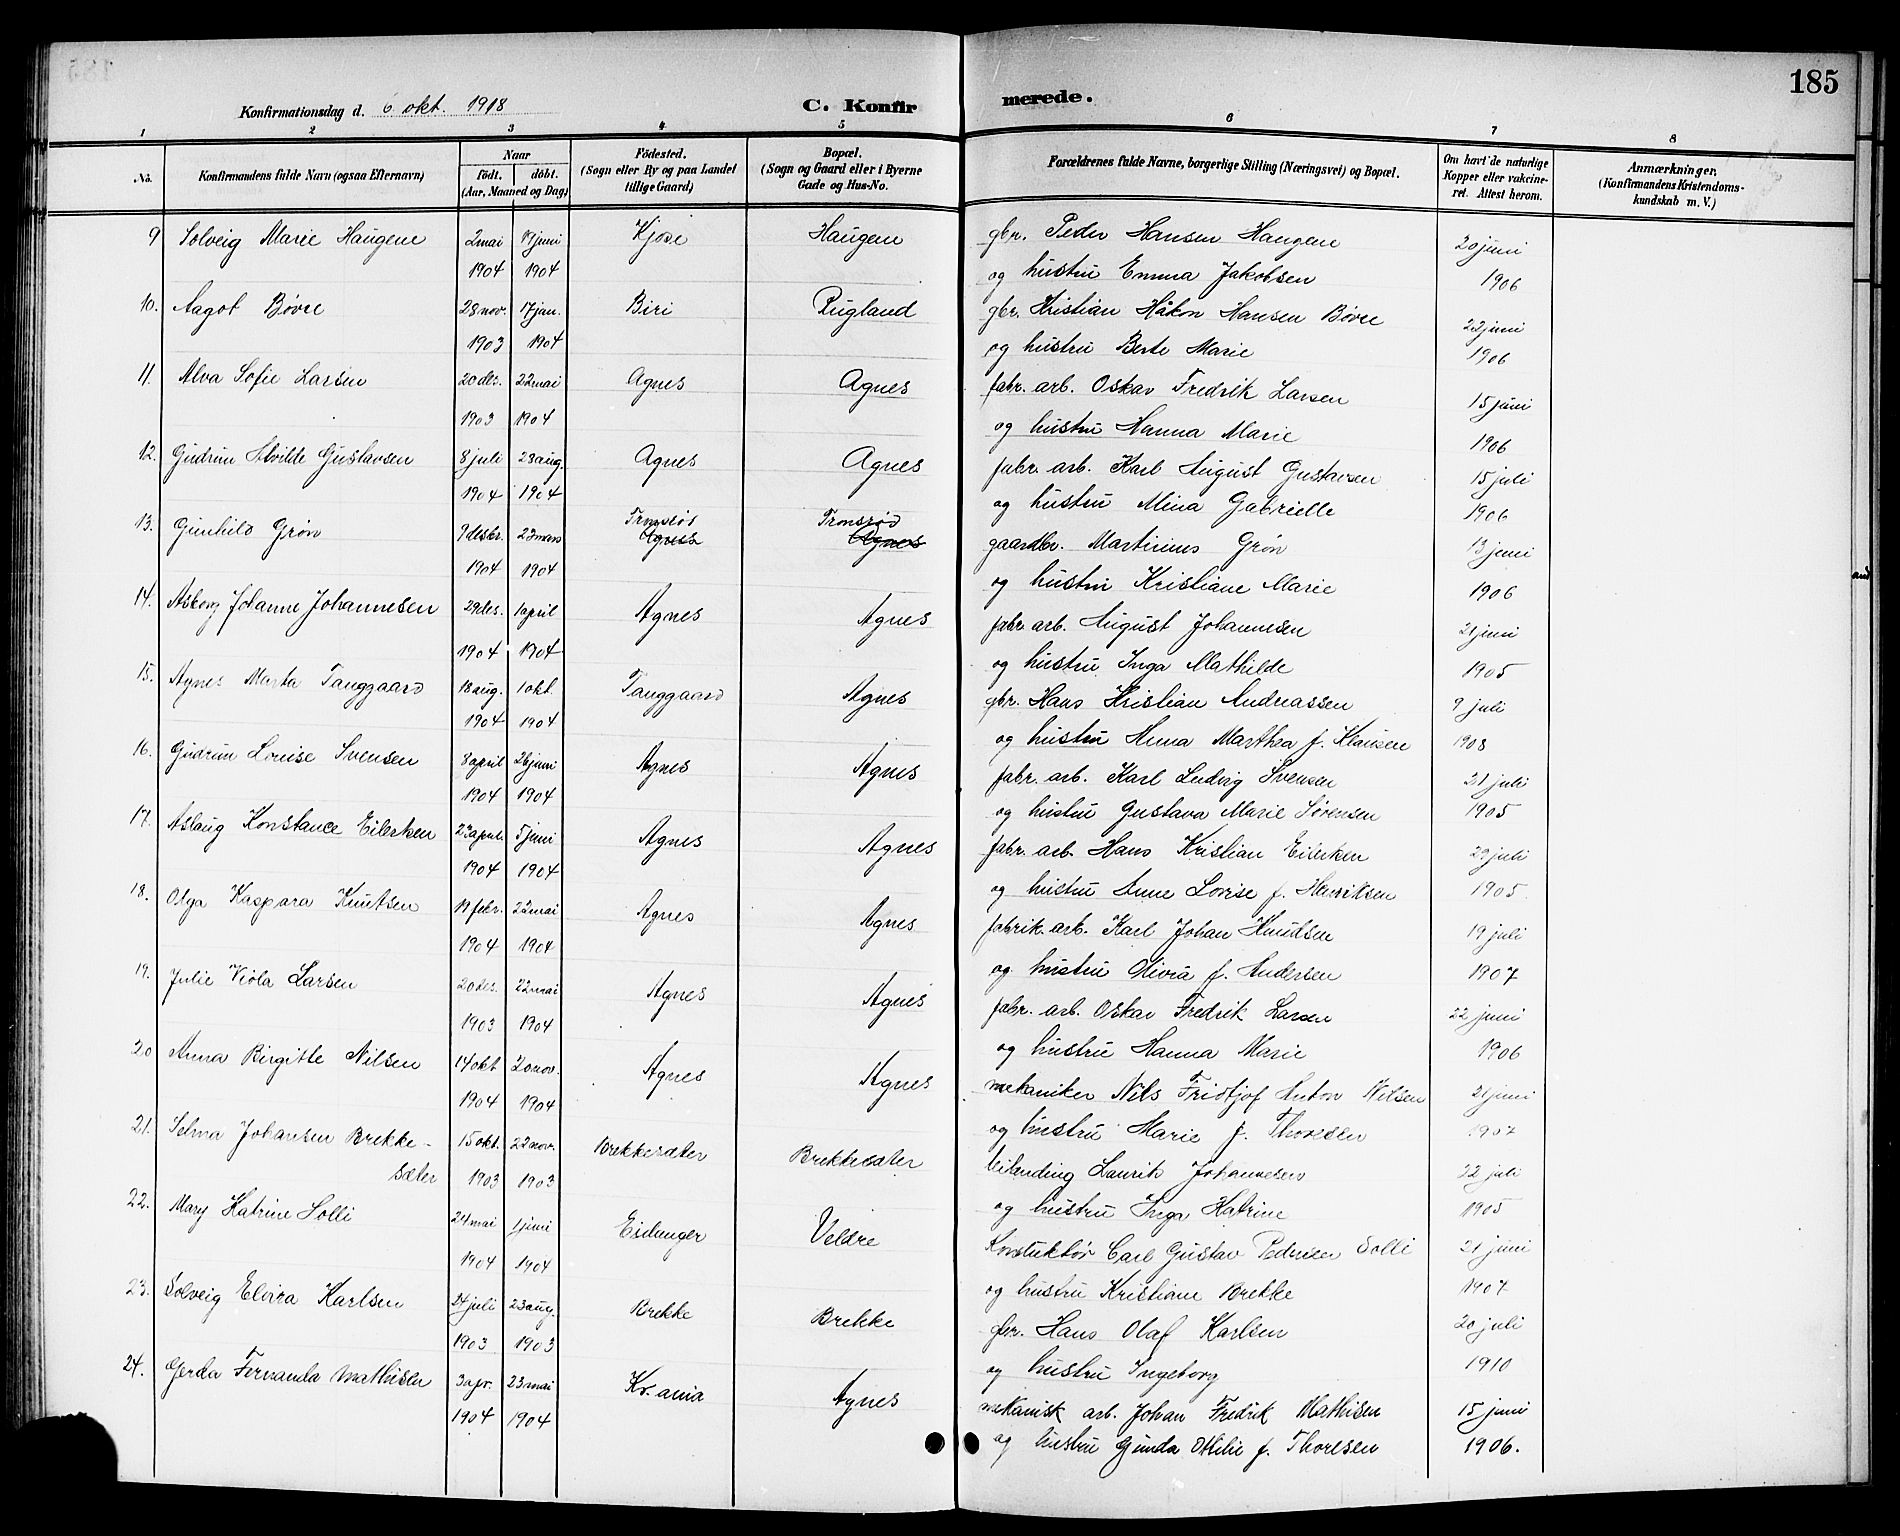 185
Konfirmationsdag d. 6 okt. 1918
C. Konfirmerede.
1 2 3 4 5 6 7 8
No. Konfirmandens fulde Navn (ogsaa Efternavn) Naar födt. döbt. (Aar, Maaned og Dag) Födested. (Sogn eller By og paa Landet tillige Gaard) Bopæl. (Sogn og Gaard eller i Byerne Gade og Hus-No. Forældrenes fulde Navne, borgerlige Stilling (Næringsvei) og Bopæl. Om havt de naturlige Kopper eller vakcineret. Attest herom. Anmærkninger. (Konfirmandens Kristendomskundskab m. V.)
9 Solveig Marie Haugene 2 mai 19 juni Kjose Haugene gbr. Peder Hansen Haugene 20 juni
1904 1904 og hustru Emma Jakobsen 1906
10. Aagot Bövre 28 nov. 17 jan. Biri Rugland gbr. Kristian Håkon Hansen Bövre 22 juni
1903 1904 og hustru Berte Marie 1906
11. Alva Sofie Larsen 20 des. 22 mai Agnes Agnes fabr. arb. Oskar Fredrik Larsen 15 juni
1903 1904 og hustru Hanna Marie 1906
12. Gudrun Alvilde Gustavsen 8 juli 28 aug. Agnes Agnes fabr. arb. Karl August Gustavsen 15 juli
1904 1904 og hustru Mina Gabrielle 1906
13. Gunhild Grön 9 desbr. 23 mars Tronsröd Agnes Tronsröd Agnes gaardbr. Martinius Grön 13 juni
1904 1904 og hustru Kristiane Marie 1906
14. Asborg Johanne Johannesen 29 des. 1 april Agnes Agnes fabr. arb. August Johannesen 21 juni
1904 1904 og hustru Inga Mathilde 1905
15. Agnes Marta Tanggaard 18 aug. 1 okt. Tanggaard Agnes gbr. Hans Kristian Andreassen 9 juli
1904 1904 og hustru Anna Marthea f. Klausen 1908
16. Gudrun Louise Svensen 8 april 26 juni Agnes Agnes fabr. arb. Karl Ludvig Svensen 21 juli
1904 1904 og hustru Gustava Marie Sörensen 1905
17. Aslaug Konstance Eilerksen 23 april 5 juni Agnes Agnes fabr. arb. Hans Kristian Eilerksen 29 juli
1904 1904 og hustru Anne Lovise f. Henriksen 1905
18. Olga Kaspara Knutsen 19 febr. 22 mai Agnes Agnes fabrik. arb. Karl Johan Knudsen 19 juli
1904 1904 og hustru Olivia f. Andersen 1907
19. Julie Viola Larsen 20 des. 22 mai Agnes Agnes fabr. arb. Oskar Fredrik Larsen 22 juni
1903 1904 og hustru Hanna Marie 1906
20 Anna Birgitte Nilsen 14 okt 20 nov. Agnes Agnes mekaniker Nils Fridtjof Anton Nilsen 21 juni
1904 1904 og hustru Marie f. Thoresen 1907
21. Selma Johansen Brekke- 15 okt. 22 nov. Brekkesæter Brekkesæter leilending Laurits Johannesen 22 juli
sæter 1903 1903 og hustru Inga Katrine 1905
22. Mary Katrine Solli 24 mai 1 juni Eidanger Veldre Konstuktör Carl Gustav Pedersen Solli 21 juni
1904 1904 og hustru Kristiane Brekke 1907
23. Solveig Elvira Karlsen 24 juli 23 aug. Brekke Brekke gbr. Hans Olaf Karlsen 20 juli
1903 1903 og hustru Ingeborg 1910
24. Gerda Fernanda Mathisen 3 apr. 23 mai Kr.ania Agnes mekanisk arb. Johan Fredrik Mathisen 15 juni
1904 1904 og hustru Gunda Otilie f. Thoresen 1906.